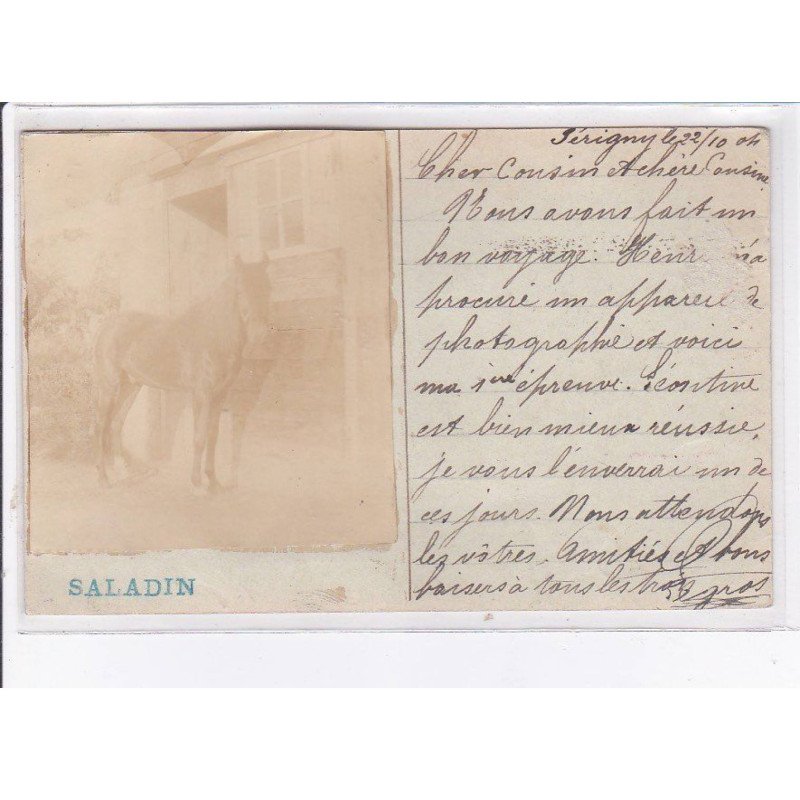 Périgny le 22/10 04
Cher Cousin et chère Cousine
Nous avons fait un
bon voyage. Henri m'a
procuré un appareil de
photographie et voici
ma 1ère épreuve. Léontine
est bien mieux réussie,
je vous l'enverrai un de
ces jours. Nous attendons
les vôtres. Amitiés et bons
baisers à tous les trois
gros
SALADIN